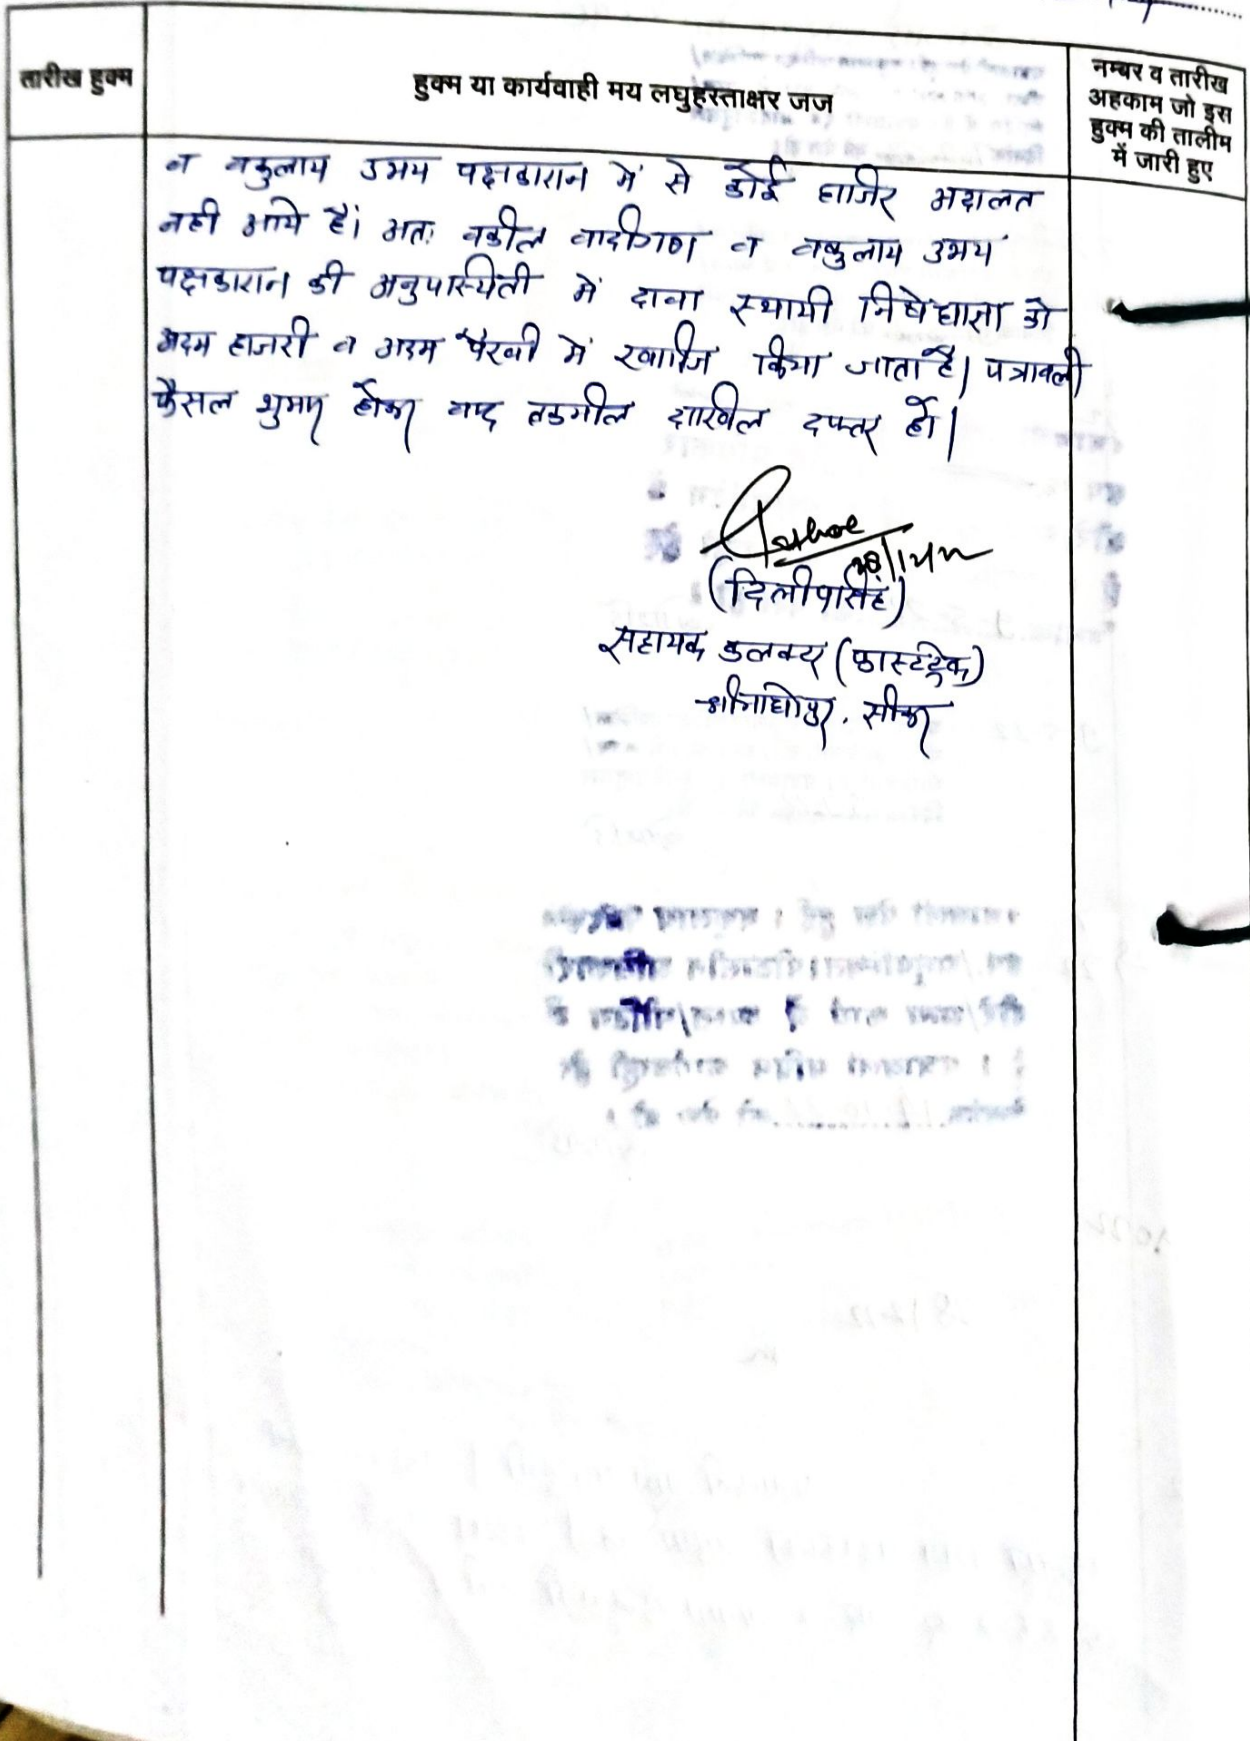 तारीख हुक्म
हुक्म या कार्यवाही मय लघुहस्ताक्षर जज
नम्बर व तारीख
अहकाम जो इस
हुक्म की तालीम
में जारी हुए
व वकुलाय उभय पक्षकारान में से कोई हाजिर अदालत
नही आये हैं। अतः वकील वादीगण व वकुलाय उभय
पक्षकारान की अनुपास्थिती में दावा स्थायी निषेधाज्ञा को
अदम हाजरी व अदम पैरवी में खारीज किया जाता है। पत्रावली
फैसल शुमार होकर बाद तकमील दाखिल दफ्तर हो।
(दिलीपसिंह)
सहायक कलक्टर (फास्टट्रेक)
श्रीमाधोपुर, सीकर